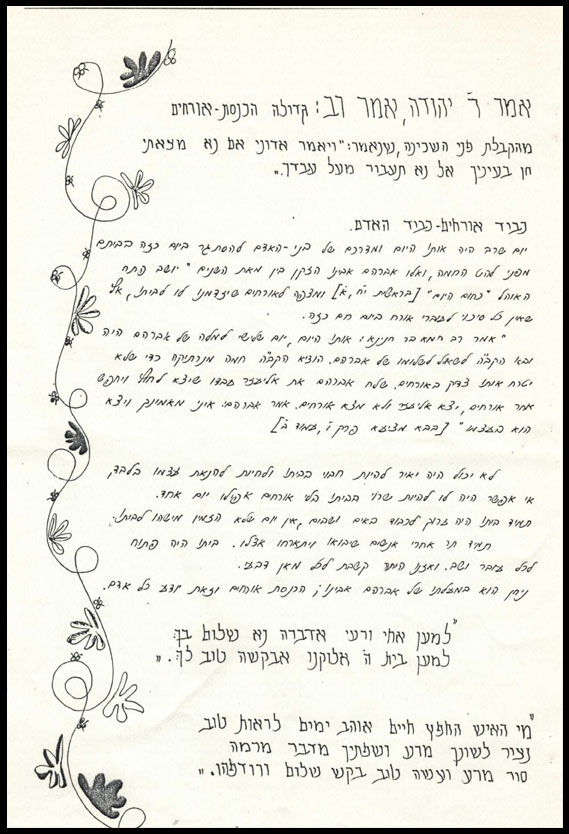 אמר ר' יהודה, אמר רב: גדולה הכנסת-אורחים
מהקבלת פני השכינה, שנאמר: "ויאמר אדוני אם נא מצאתי
חן בעיניך אל נא תעבור מעל עבדך".
כביד אורחים-כביד האדם.
יום שרב היה אותו היום ומדרכם של בני-האדם להסתגר ביום כזה בבתיהם
מפני להט החמה, ואלו אברהם אבינו הזקן בין מאת השנים "יושב פתח
האוהל "כחום היום" [בראשית י"ח, א'] ומצפה לאורחים שיזדמנו לו לביתו, אף
שאין כל סיכוי לעוברי אורח ביום חם כזה.
"אמר רב חמא בר חנינא: אותו היום, יום שלישי למילה של אברהם היה
ובא הקב"ה לשאול לשלומו של אברהם. הוציא הקב"ה חמה מנרתיקה כדי שלא
יטרח אותו צדיק באורחים. שלח אברהם את אליעזר עבדו שיצא לחוץ ויחפש
אחר אורחים, יצא אליעזר ולא מצא אורחים. אמר אברהם: איני מאמינך ויצא
הוא בעצמו" [בבא מציעא פרק ז', עמוד ב']
לא יכול היה יאיר להיות חבוי בביתו ולחיות להנאת עצמו בלבד,
אי אפשר היה לו להיות שרוי בביתו בלי אורחים אפילו יום אחד.
תמיד ביתו היה ערוך לכבוד באים ושבים, אין יום שלא הזמין מישהו לביתו.
תמיד תר אחרי אנשים שיבואו ויתארחו אצלו. ביתו היה פתוח
לכל עובר ושב. ואזנו היתה קשבת לכל מאן דבעי.
ניחן הוא במעלתו של אברהם אבינו; הכנסת אורחים וזאת יודע כל אדם.
"למען אחי ורעי אדברה נא שלום בך
למען בית ה' אלוקנו אבקשה טוב לך."
"מי האיש החפץ חיים אוהב ימים לראות טוב
נציר לשונך מרע ושפתיך מדבר מרמה
סור מרע ועשה טוב בקש שלום ורודפהו."